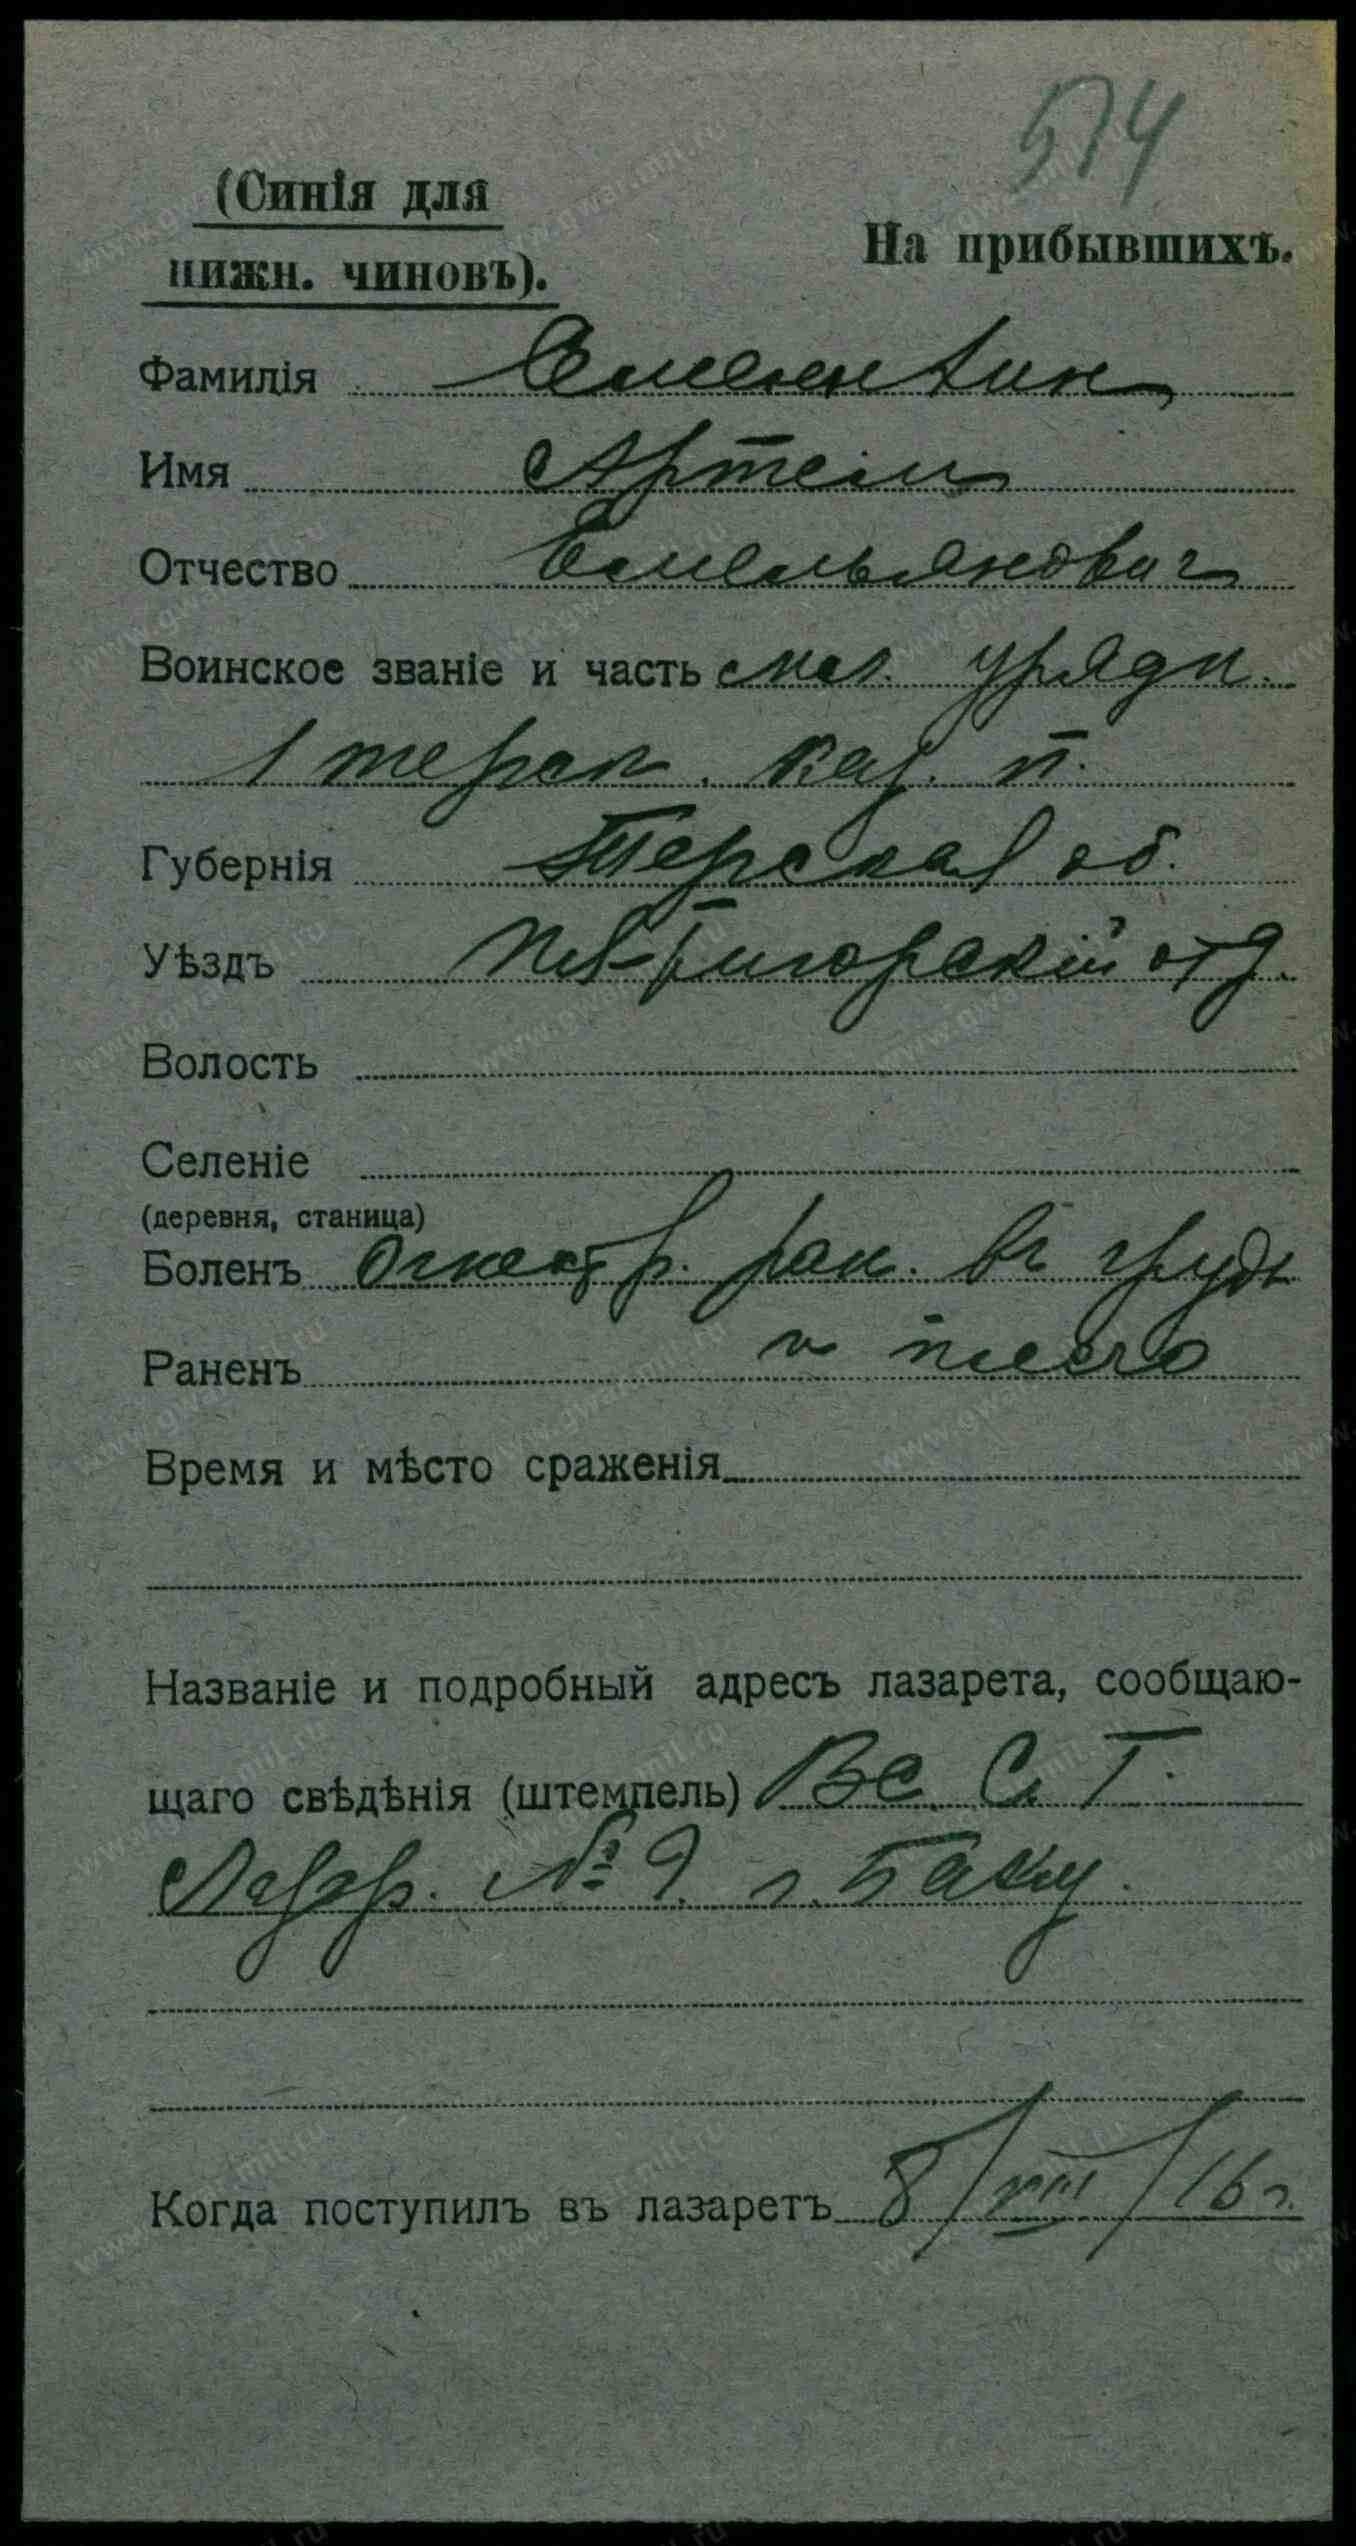 574
(Синія для
нижн. чиновъ).
На прибывшихъ.
Фамилія
Имя Артем
Отчество Емельянович
Воинское званіе и часть мл. урядн.
1 терск. каз. п.
Губернія Терская об.
Уѣздъ Пятигорскій отд.
Волость
Селеніе
(деревня, станица)
Боленъ Огнестр. ран. въ грудь
Раненъ и плечо
Время и мѣсто сраженія
Названіе и подробный адресъ лазарета, сообщаю-
щаго свѣдѣнія (штемпель) В С. Г.
Лазар. № 9. г. Баку.
Когда поступилъ въ лазаретъ 8/VIII/16 г.
www.gwar.mil.ru